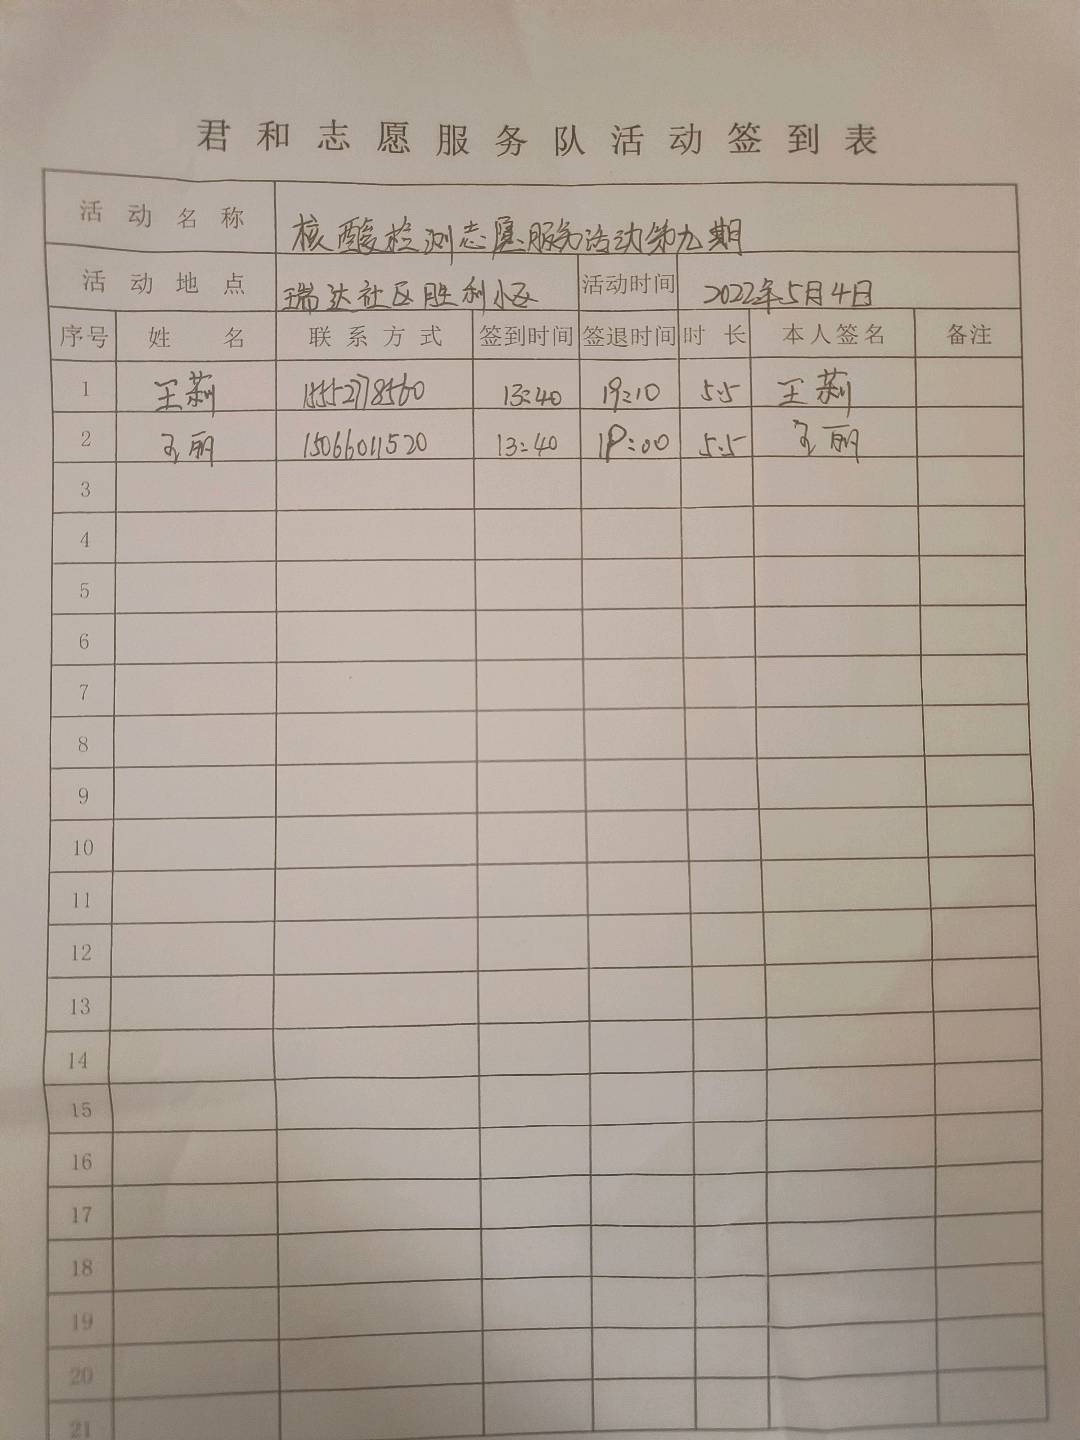 君和志愿服务队活动签到表
活动名称 核酸检测志愿服务活动第九期
活动地点 瑞达社区胜利小区 活动时间 2022年5月4日
序号 姓名 联系方式 签到时间 签退时间 时长 本人签名 备注
1 王莉 15552778560 13:40 19:10 5.5 王莉
2 王丽 15066011520 13:40 19:00 5.5 王丽
3
4
5
6
7
8
9
10
11
12
13
14
15
16
17
18
19
20
21